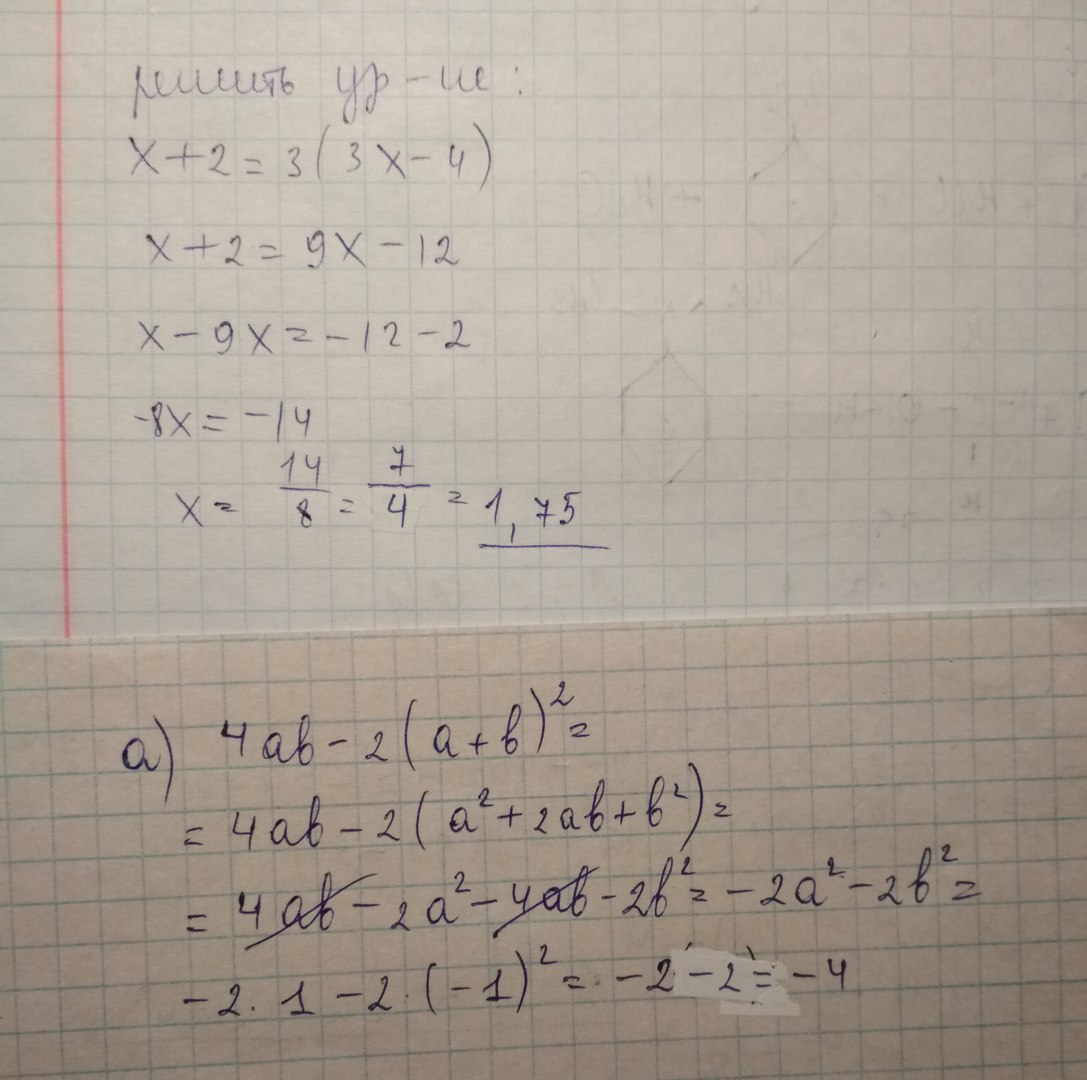 решить ур-ие:
x+2=3(3x-4)
x+2=9x-12
x-9x=-12-2
-8x=-14
x= 14/8 = 7/4 = 1,75
а) 4ab-2(a+b)²=
=4ab-2(a²+2ab+b²)=
=4ab-2a²-4ab-2b²=-2a²-2b²=
-2·1-2·(-1)²=-2-2=-4